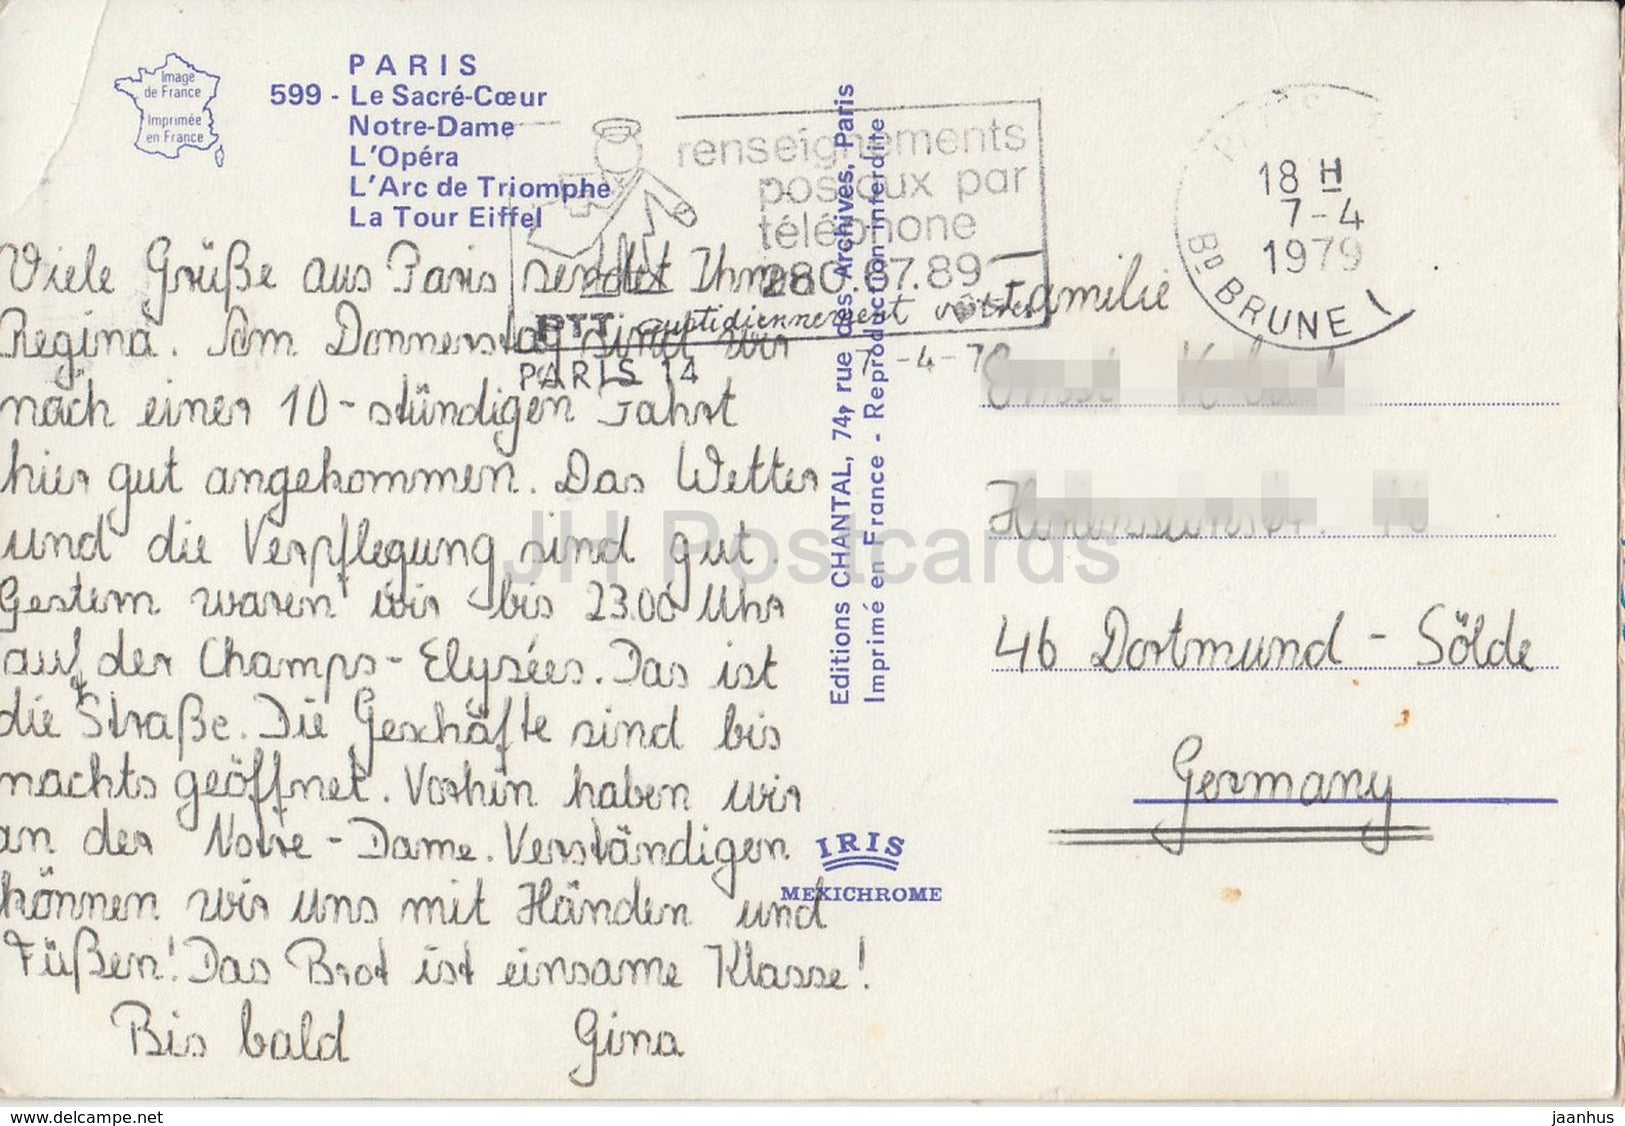 Image
de France
Imprimée
en France
PARIS
599 - Le Sacré-Cœur
Notre-Dame
L'Opéra
L'Arc de Triomphe
La Tour Eiffel
renseignements
postaux par
téléphone
280.67.89
PTT quotidiennement vôtre
PARIS 14 7-4-7
18 H
7-4
1979
BD BRUNE
Viele Grüße aus Paris sendet Ihnen
Regina. Am Donnerstag sind wir
nach einer 10-stündigen Fahrt
hier gut angekommen. Das Wetter
und die Verpflegung sind gut.
Gestern waren wir bis 23.00 Uhr
auf der Champs-Elysées. Das ist
die Straße. Die Geschäfte sind bis
nachts geöffnet. Vorhin haben wir
an der Notre-Dame. Verständigen
können wir uns mit Händen und
Füßen! Das Brot ist einsame Klasse!
Bis bald Gina
Editions CHANTAL, 74, rue des Archives, Paris
Imprimé en France - Reproduction interdite
IRIS
MEXICHROME
Familie
46 Dortmund - Sölde
Germany
JH Postcards
www.delcampe.net
jaanhus